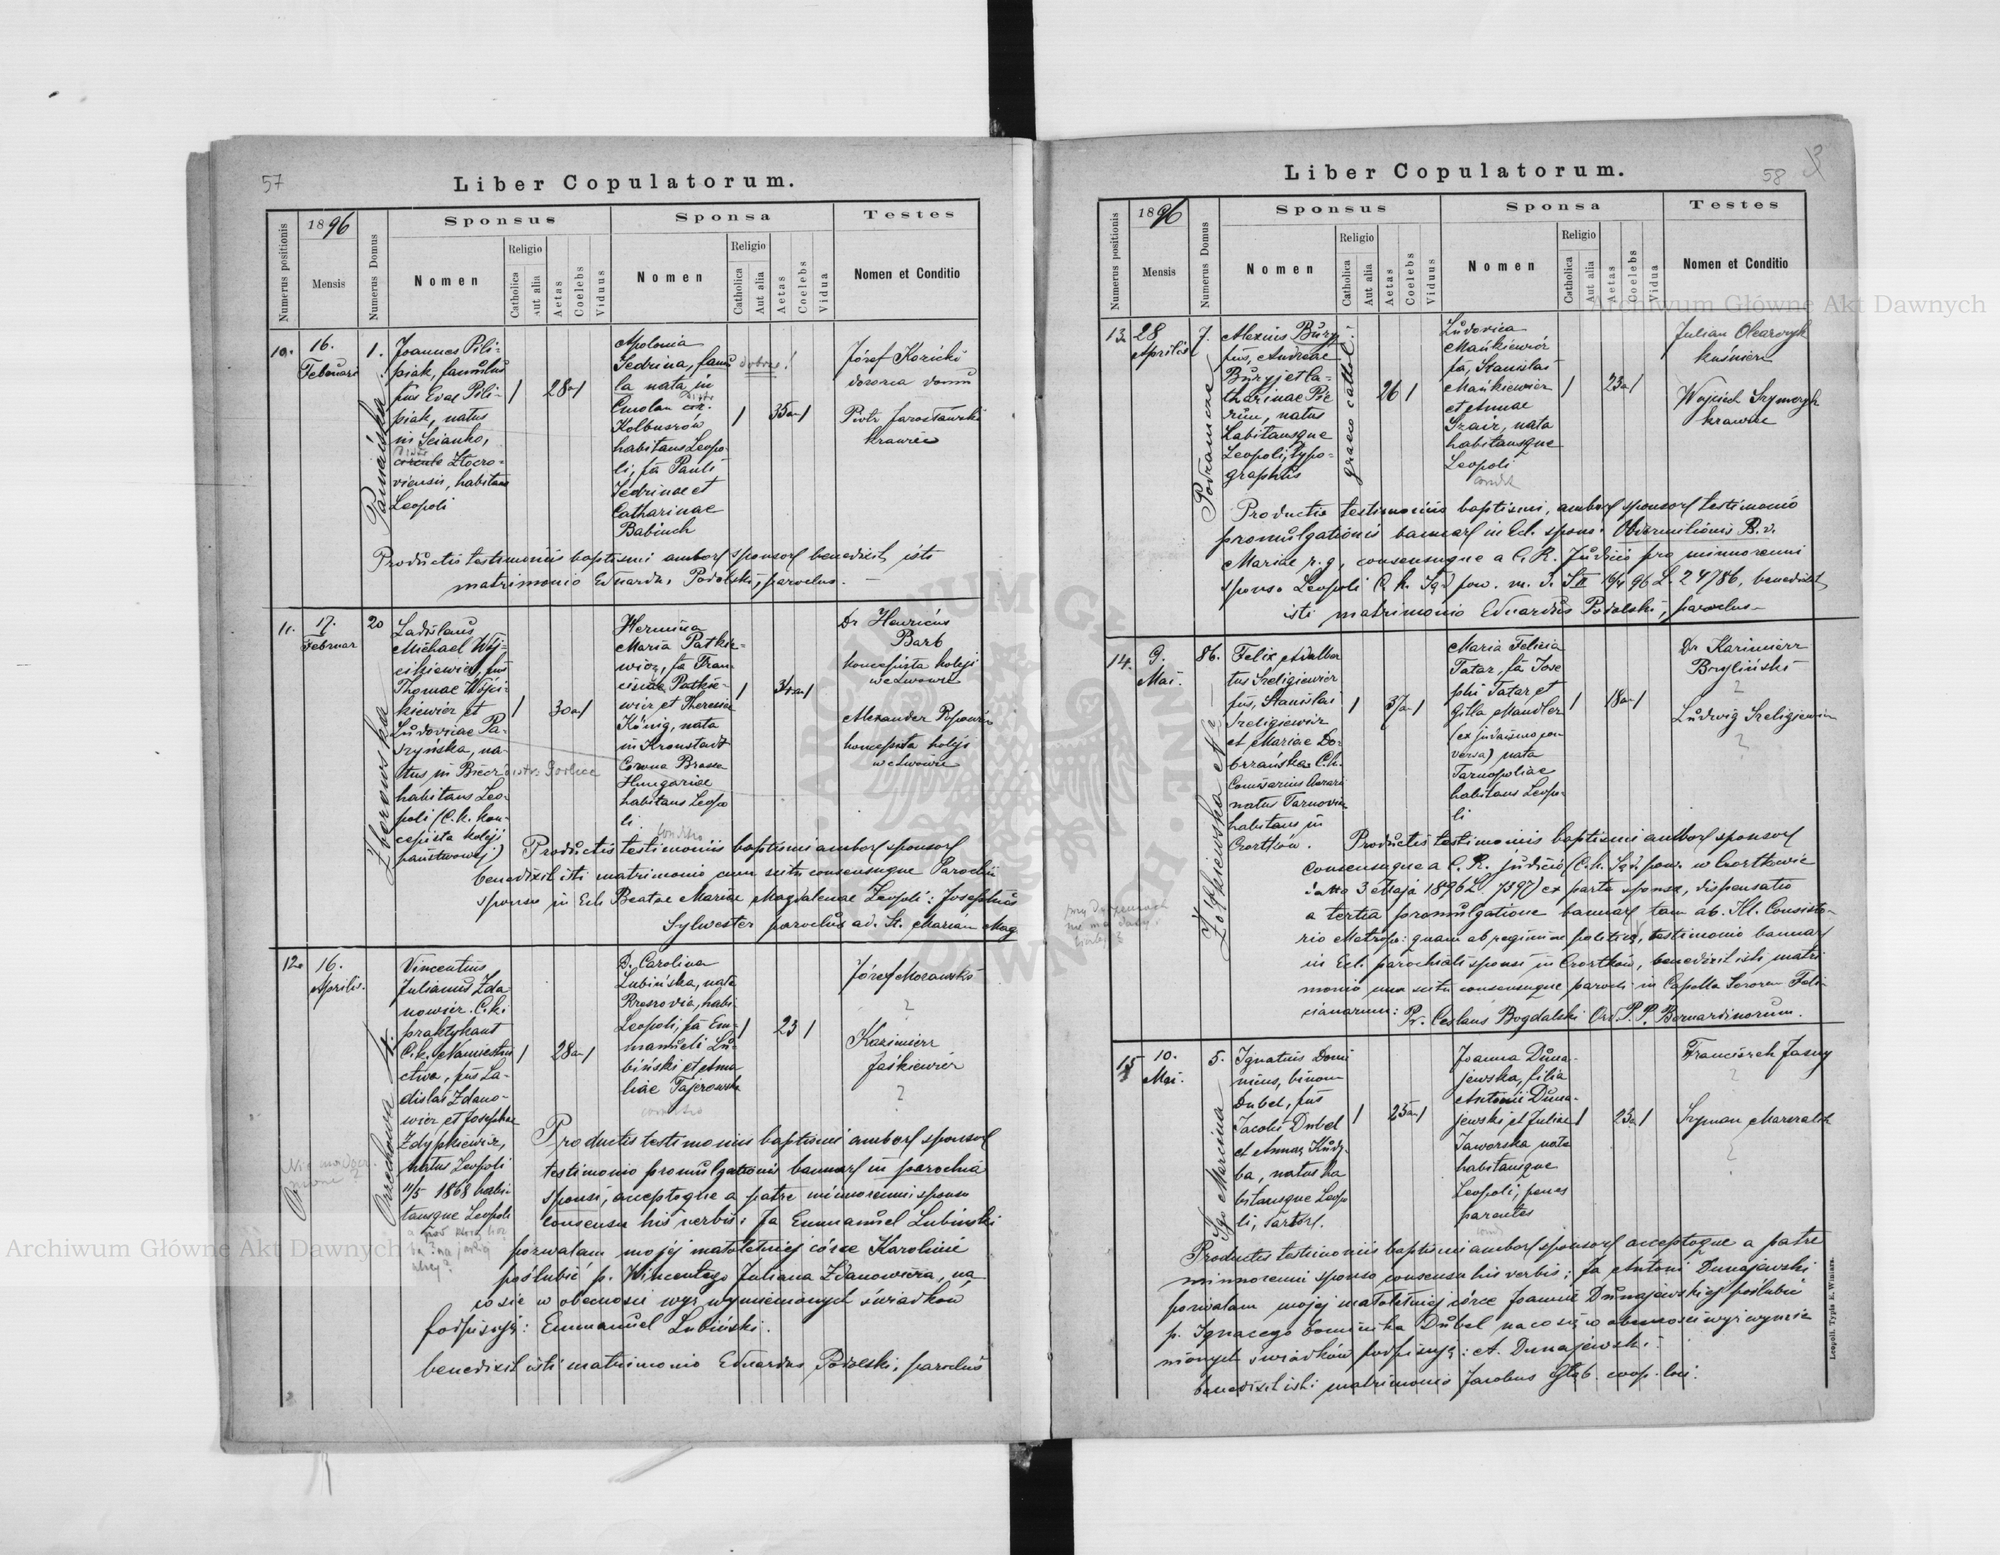 57
Liber Copulatorum.
Numerus positionis
1896
Mensis
Numerus Domus
Sponsus
Nomen
Religio
Catholica
Aut alia
Aetas
Coelebs
Viduus
Sponsa
Nomen
Religio
Catholica
Aut alia
Aetas
Coelebs
Vidua
Testes
Nomen et Conditio
10.
16.
Februari
1.
Joannes Pili-
piak, famulus
fus Evae Pili-
piak, natus
in Scianko,
Złoczo-
viensis, habitans
Leopoli
28a
Apolonia
Sedrina, famu
la nata in
Cmolan
Kolbuszów
habitans Leopo-
li, fa Pauli
Sedrinae et
Catharinae
Babiuch
dobrze!
35a
Józef Kozicki
dozorca domu
Piotr Jarosławski
krawiec
Productis testimoniis baptismi ambor sponsor benedixit isti
matrimonio Eduardus Podolski, parochus.
11.
17.
Februar
20
Zborowska
Ladislaus
Michael Wój-
cikiewicz, fus
Thomae Wójci-
kiewicz et
Ludovicae Pa-
szyńska, na-
tus in Biecz
habitans Leo-
poli (C.k. kon-
cepista koleji
państwowej)
30a
Hermina
Maria Patkie-
wicz, fa Fran-
cisci Patkie-
wicz et Theresiae
König, nata
in Kronstadt
Corona Brassa
Hungariae
habitans Leopo
li.
34a
Dr Henricus
Barb
koncepista koleji
we Lwowie
Alexander Popowicz
koncepista koleji
we Lwowie
Productis testimoniis baptismi ambor sponsor
benedixit isti matrimonio cum scitu consensuque Parochi
sponsae in Ecl. Beatae Mariae Magdalenae Leopoli: Josephus
Sylwester parochus ad. St. Mariam Mag
12.
16.
Aprilis.
Orzechowa
Vincentius
Julianus Zda
nowicz C.k.
praktykant
C.k. Namiestni
ctwa, fus La-
dislai Zdano-
wicz et Josephae
natus Leopoli
11/5 1868 habi-
tansque Leopoli
28a
D. Carolina
Lubińska, nata
Rzeszovia, habi-
Leopoli, fa Em-
manueli Lu-
biński et Ama-
liae Fajerowska
23
Józef Morawski
?
Kazimierz
Jaśkiewicz
?
Productis testimoniis baptismi ambor sponsor
testimonio promulgationis bannor in parochia
sponsi, acceptoque a patre minorenni sponsae
consensu his verbis: Ja Emmanuel Lubiński
pozwalam mojej małoletniej córce Karolinie
poślubić p. Wincentego Juliana Zdanowicza, na
co się w obecności wyż wymienionych świadków
podpisuję: Emmanuel Lubiński.
benedixit isti matrimonio Eduardus Podolski, parochus
58
Liber Copulatorum.
Numerus positionis
1896
Mensis
Numerus Domus
Sponsus
Nomen
Religio
Catholica
Aut alia
Aetas
Coelebs
Viduus
Sponsa
Nomen
Religio
Catholica
Aut alia
Aetas
Coelebs
Vidua
Testes
Nomen et Conditio
13
28
Aprilis
7.
Alexius Buryj
fus, Andreae
Buryj et Ca-
tharinae Pie
natus
habitansque
Leopoli, typo-
graphus
graeco cathol:
26
Ludovica
Mańkiewicz
fa, Stanislai
Mańkiewicz
et Annae
Szair, nata
habitansque
Leopoli
23a
Julian Olearczyk
kuśnierz
Wojciech Szymczyk
krawiec
Productis testimoniis baptismi, ambor sponsor testimonio
promulgationis bannor in Ecl. spons.
Mariae r. g., consensuque a C. R. Judicio pro minorenni
sponsa Leopoli C. k. Sąd pow. m. d. L. 24786, benedixit
isti matrimonio Eduardus Podolski, parochus
14.
9.
Mai.
86.
Żółkiewska
Felix Adalber
tus Szeligiewicz
fus, Stanislai
Szeligiewicz
et Mariae Do-
brzańska C.k.
natus Tarnoviae
habitans in
Czortków.
37a
Maria Felicia
Tatar, fa Jose
phi Tatar et
Gitla Mandler
(ex judaismo con
versa) nata
Tarnopoliae
habitans Leopo-
li
18a
Dr Kazimierz
Bryliński
?
Ludwig Szeligiewicz
?
Productis testimoniis baptismi ambor sponsor
consensuque a C. R. judicio (C.k. Sąd pow. w Czortkowie
datto 3 Maja 1896 L 7397) ex parte sponsae, dispensatio
a tertia promulgatione bannor tam ab. Ill. Consisto-
rio Metrop: quam ab regimine politico, testimonio bannor
in Ecl. parochiali sponsi in Czortków, benedixit isti matri
monio cum scitu consensuque parochi in Capella Sororum Feli
cianarum: Pr. Ceslaus Bogdalski Ord. P. P. Bernardinorum.
15
10.
Mai.
5.
Marcina
Ignatius Domi
nicus, binom
Dubel, fus
Jacobi Dubel
et Annae Kudy-
ba, natus ha
bitansque Leopo
li, Sartor.
25a
Joanna Duna-
jewska, filia
Antonii Duna-
jewski et Juliae
Jaworska nata
habitansque
Leopoli, penes
parentes
23a
Franciszek Jasny
?
Szymon Marszałek
?
Productis testimoniis baptismi ambor sponsor acceptoque a patre
minorenni sponsae consensu his verbis: Ja Antoni Dunajewski
pozwalam mojej małoletniej córce Joannie Dunajewskiej poślubić
p. Ignacego Dominika Dubel na co się w obecności wyż wymie
nionych świadków podpisuję: A. Dunajewski.
benedixit isti matrimonio Jacobus Głąb. coop. loci.
Leopoli. Typis E. Winiarz.
Archiwum Główne Akt Dawnych
Archiwum Główne Akt Dawnych